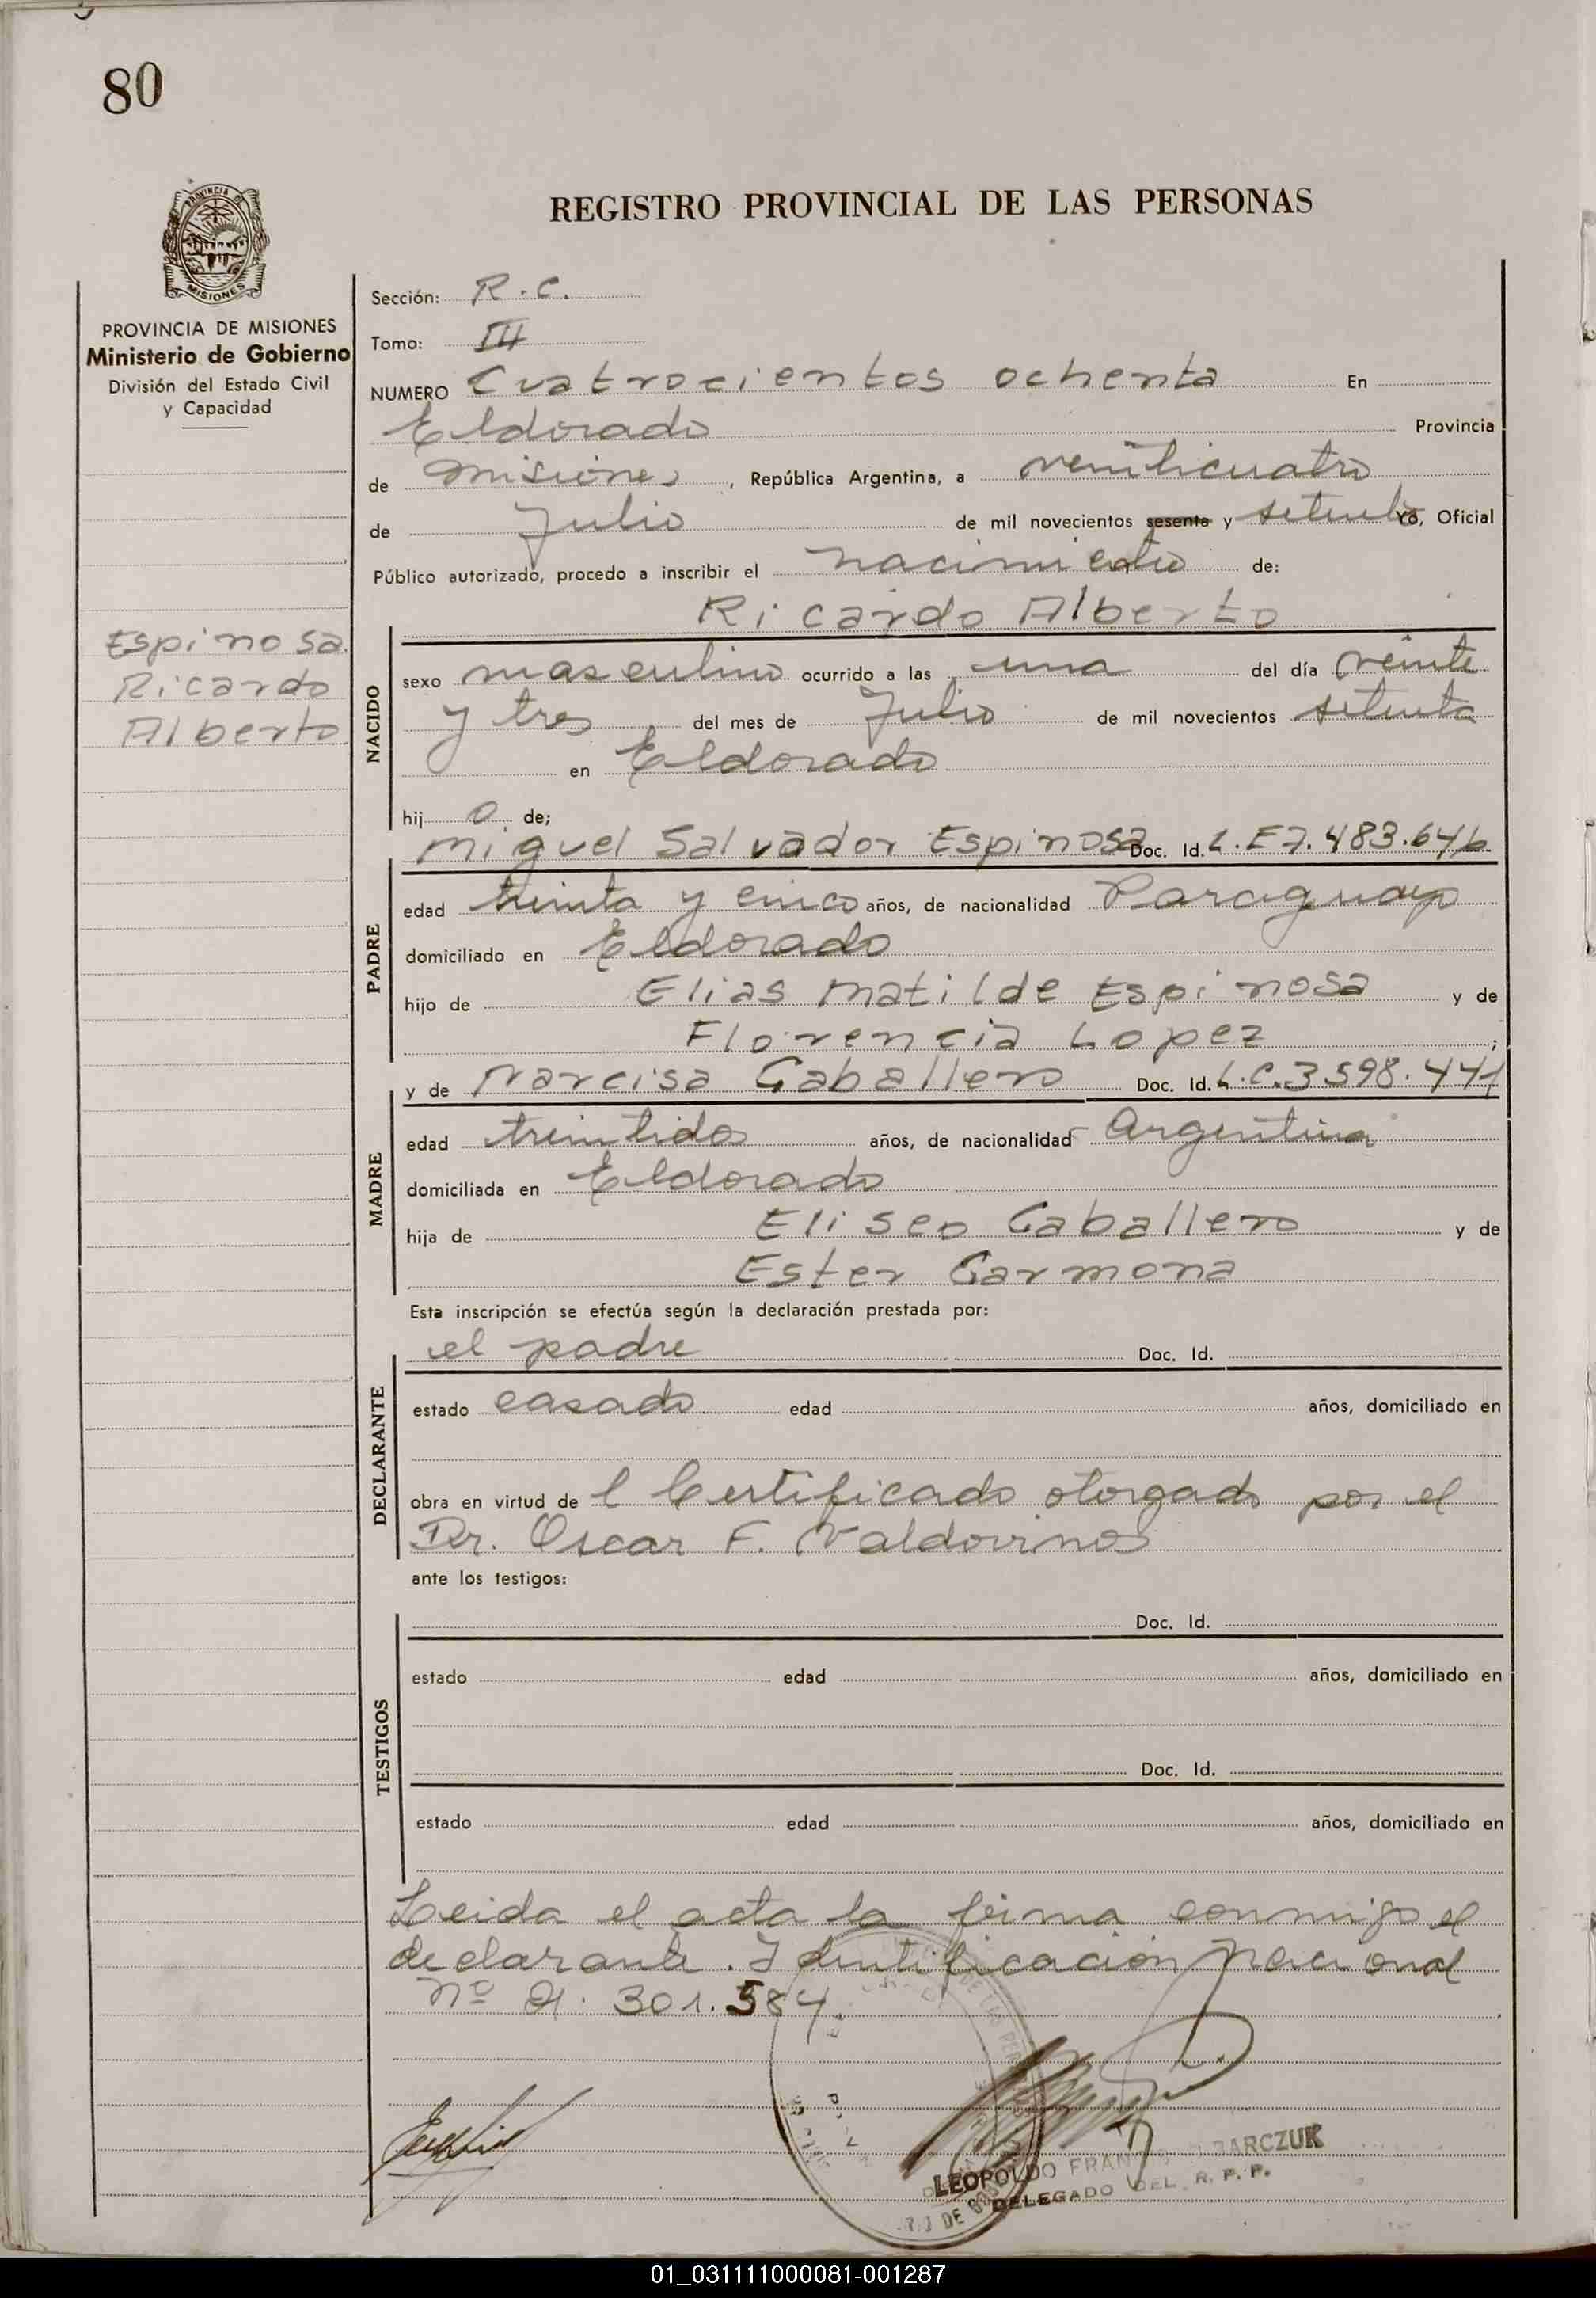 80
REGISTRO PROVINCIAL DE LAS PERSONAS
PROVINCIA
MISIONES
PROVINCIA DE MISIONES
Ministerio de Gobierno
División del Estado Civil
y Capacidad
Espinosa
Ricardo
Alberto
Sección: R.C.
Tomo: III
NUMERO Cuatrocientos ochenta En
Eldorado Provincia
de Misiones, República Argentina, a venticuatro
de Julio de mil novecientos sesenta y setenta Yo, Oficial
Público autorizado, procedo a inscribir el nacimiento de:
Ricardo Alberto
NACIDO
sexo masculino ocurrido a las una del día veinte
y tres del mes de Julio de mil novecientos setenta
en Eldorado
hij o de;
Miguel Salvador Espinosa Doc. Id. L.E 7.483.646
PADRE
edad treinta y cinco años, de nacionalidad Paraguayo
domiciliado en Eldorado
hijo de Elias Matilde Espinosa y de
Florencia Lopez;
y de Narcisa Caballero Doc. Id. L.C.3598.441
MADRE
edad treintidos años, de nacionalidad Argentina
domiciliada en Eldorado
hija de Eliseo Caballero y de
Ester Carmona
Esta inscripción se efectúa según la declaración prestada por:
el padre Doc. Id.
DECLARANTE
estado casado edad años, domiciliado en
obra en virtud de l Certificado otorgado por el
Dr. Oscar F. Valdovinos
ante los testigos:
Doc. Id.
TESTIGOS
estado edad años, domiciliado en
Doc. Id.
estado edad años, domiciliado en
Leida el acta la firma conmigo el
declarante. Identificación Nacional
Nº 21.301.584
LEOPOLDO
DELEGADO DEL R. P. P.
01_031111000081-001287